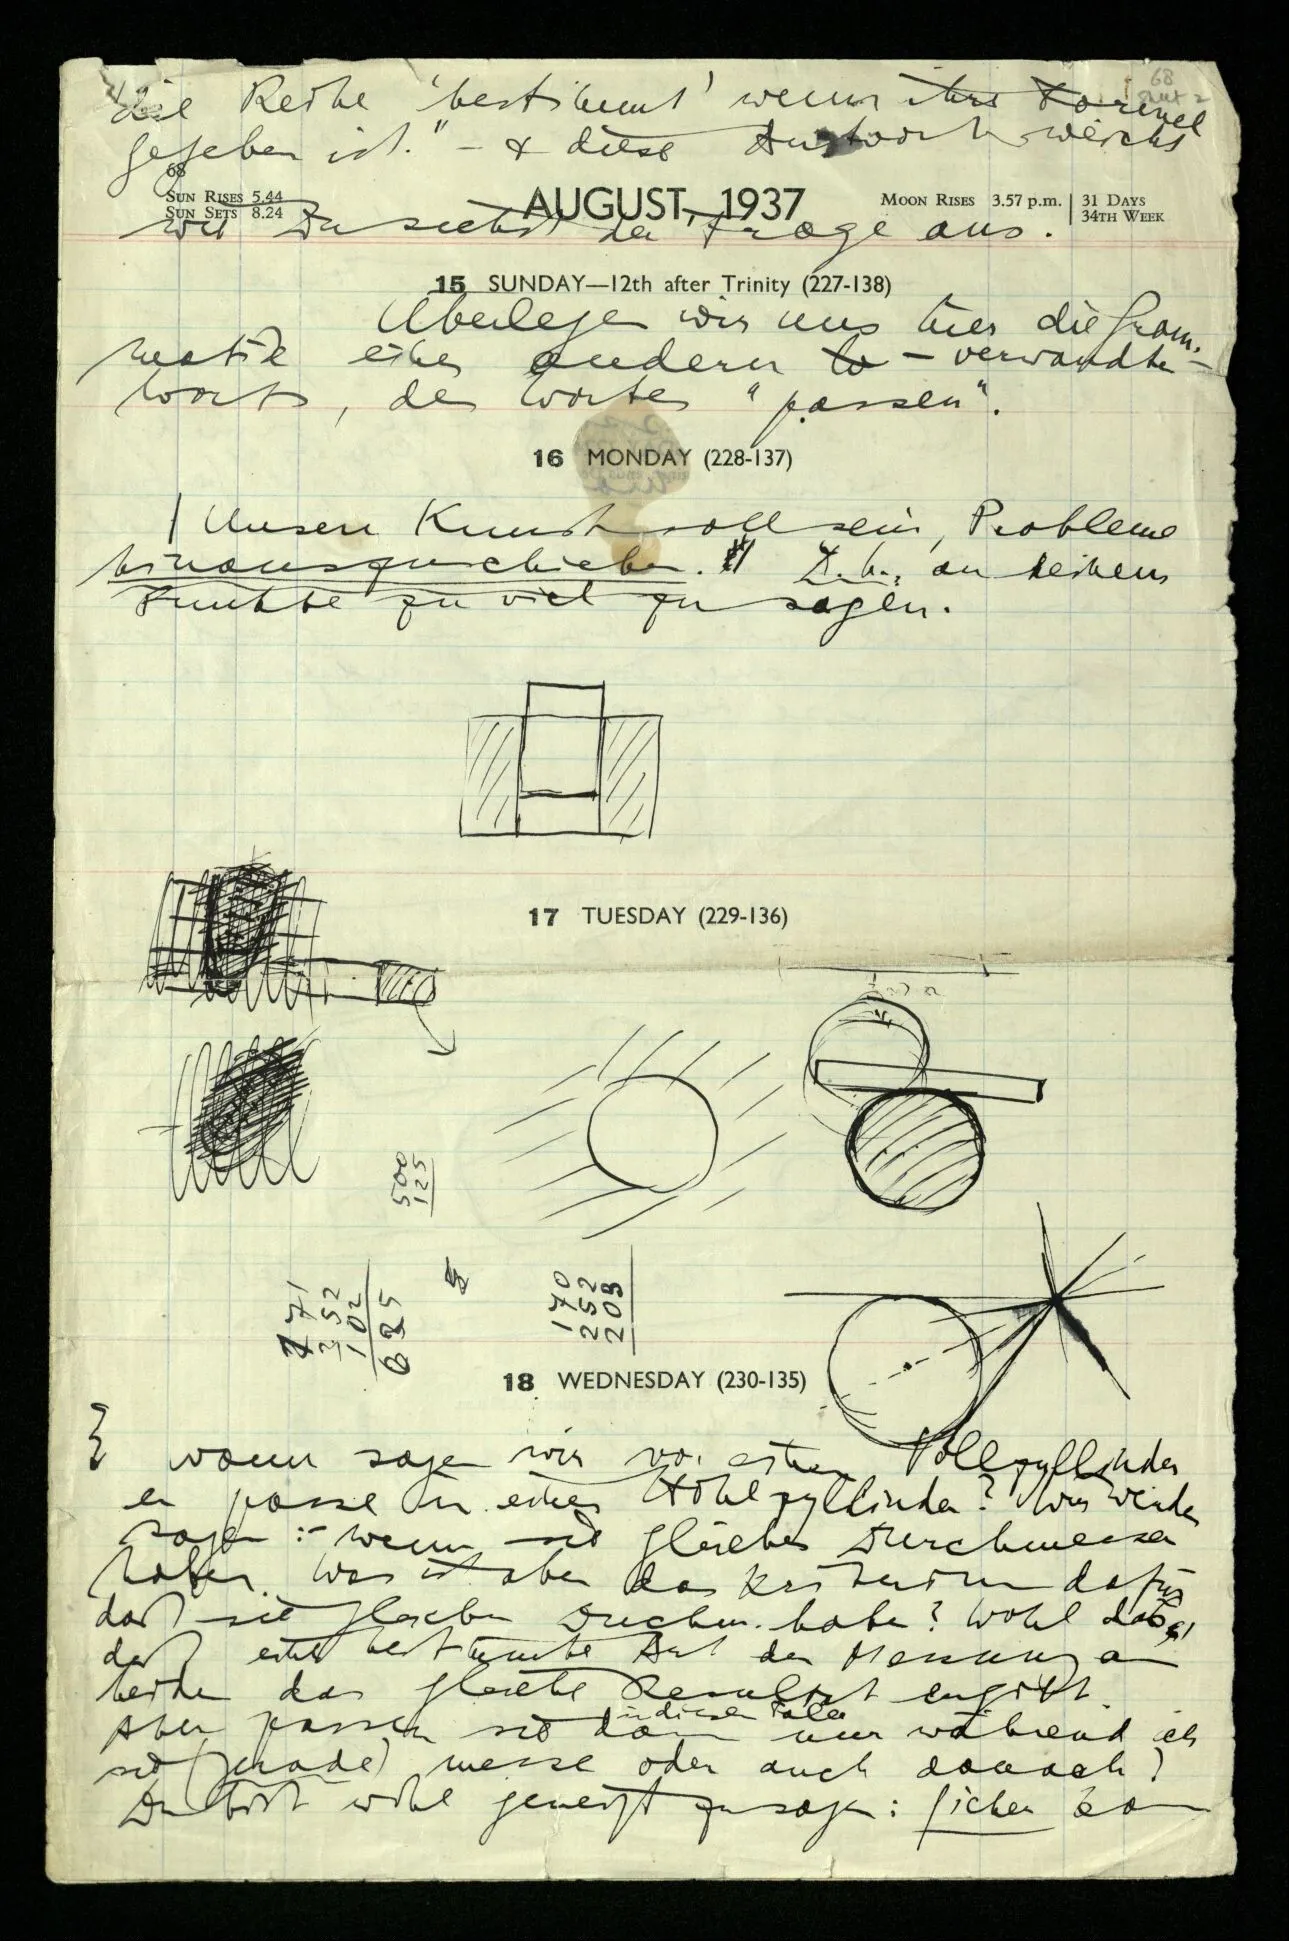 68
die Reihe 'bestimmt' wenn ihre Formel
gegeben ist." – & diese Antwort weicht
68
SUN RISES 5.44
SUN SETS 8.24
AUGUST, 1937
MOON RISES 3.57 p.m.
31 DAYS
34TH WEEK
wie Du siehst der Frage aus.
15 SUNDAY—12th after Trinity (227-138)
Überlegen wir uns hier die Gram-
matik eines andern – verwandten –
Worts, des Wortes "passen".
16 MONDAY (228-137)
/ Unsere Kunst soll sein, Probleme
hinauszuschieben. D.h., an keinem
Punkte zu viel zu sagen.
17 TUESDAY (229-136)
500
125
271
252
102
625
170
252
203
18 WEDNESDAY (230-135)
wann sagen wir von einem Vollzyllinder
er passe in einen Hohlzyllinder? Wir werden
sagen: wenn sie gleichen Durchmesser
haben. Was ist aber das Kriterium dafür
daß sie gleichen Durchm. haben? Wohl
daß eine bestimmte Art der Messung an
beiden das gleiche Resultat ergibt.
in diesem Falle
Aber passen sie dann nur während ich
sie (gerade) messe oder auch danach?
Du bist wohl geneigt zu sagen: sicher kann